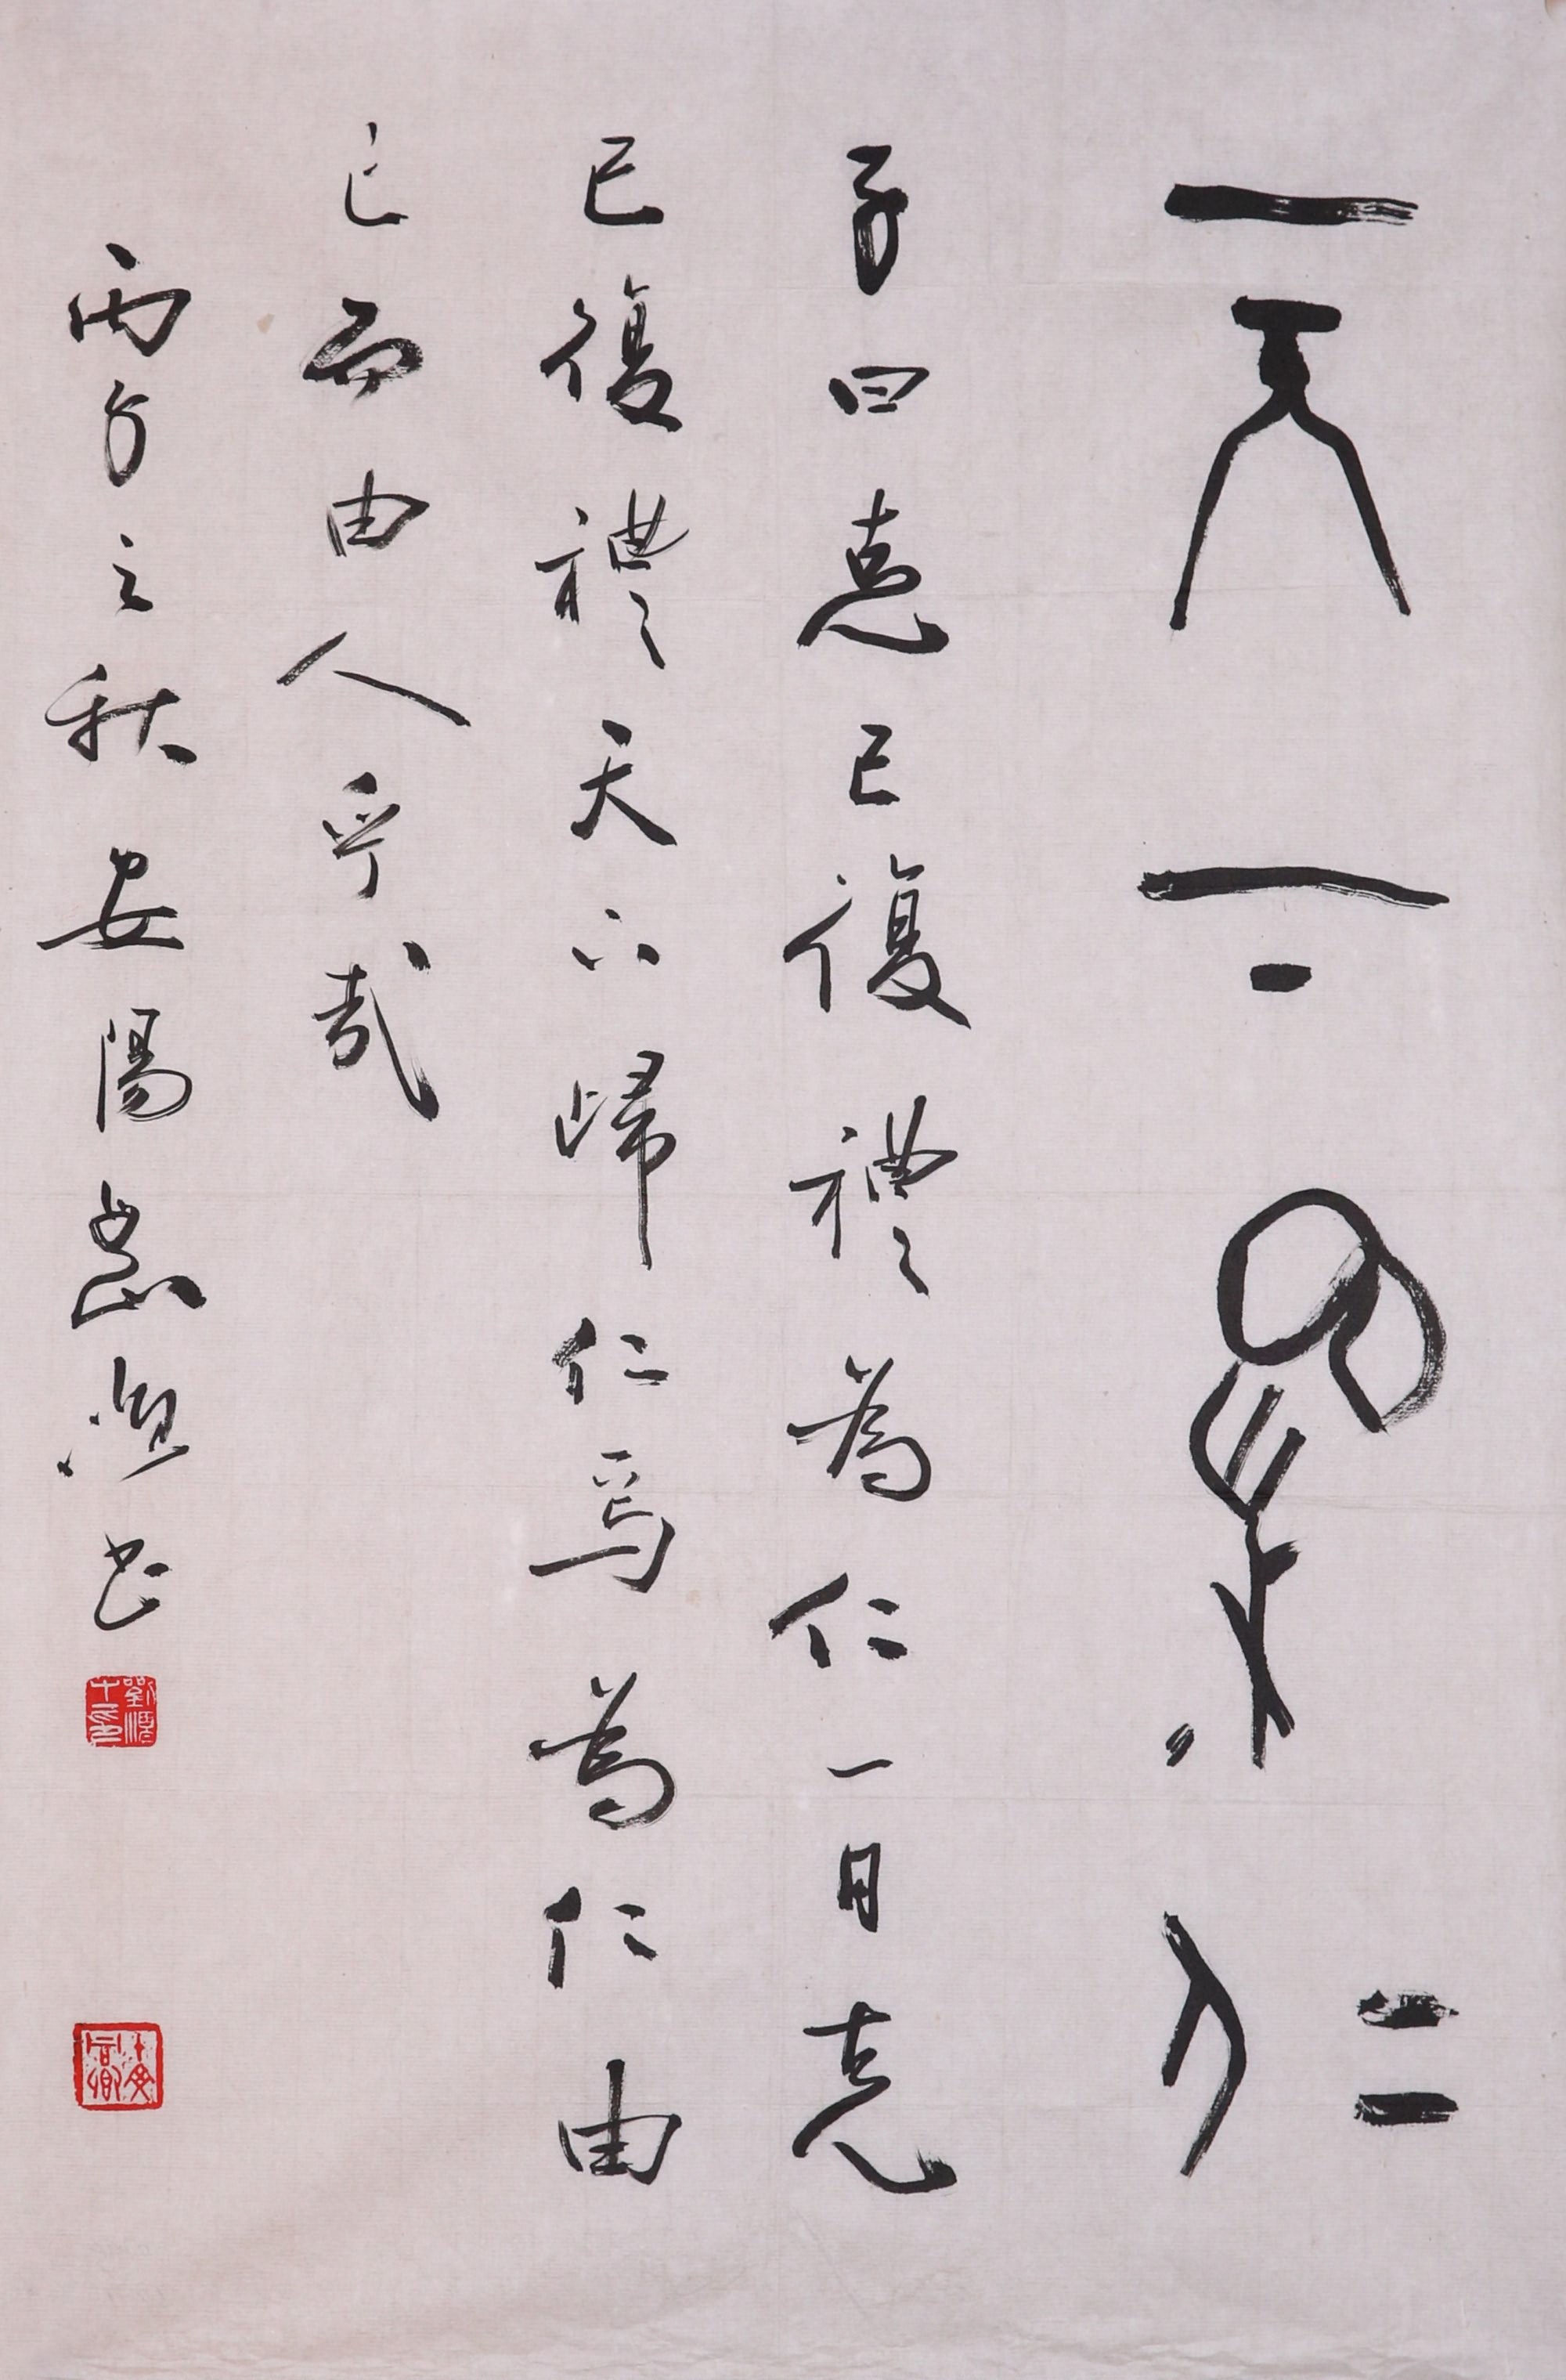 天下歸仁
子曰克己復禮為仁一日克
己復禮天下歸仁焉為仁由
己而由人乎哉
丙申之秋安陽劉順書